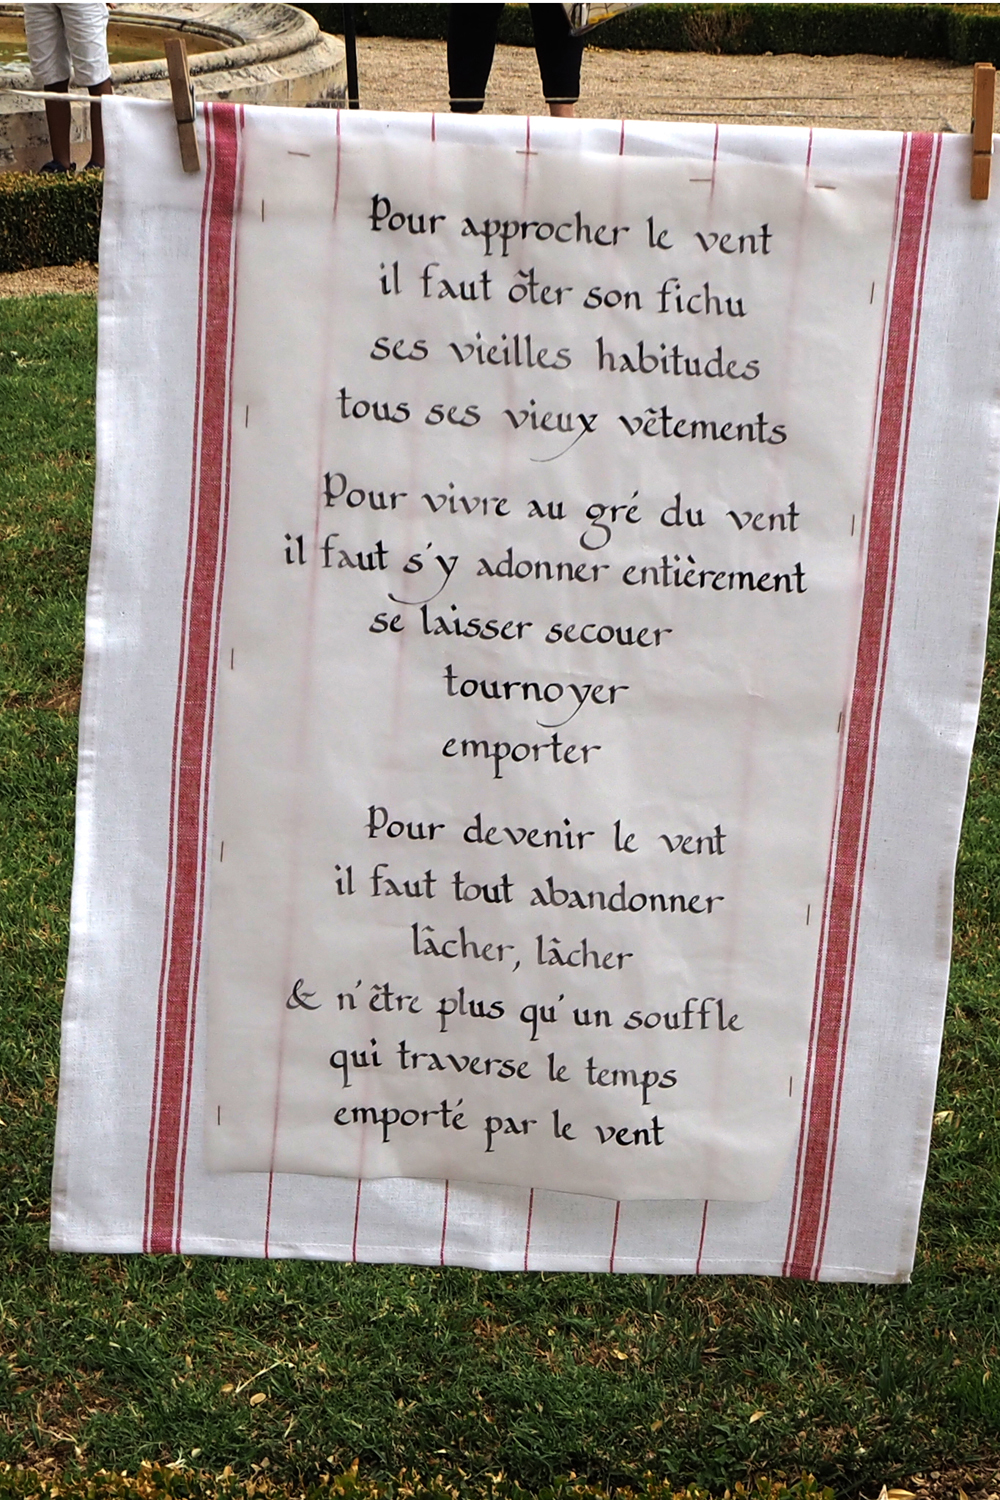 Pour approcher le vent
il faut ôter son fichu
ses vieilles habitudes
tous ses vieux vêtements
Pour vivre au gré du vent
il faut s'y adonner entièrement
se laisser secouer
tournoyer
emporter
Pour devenir le vent
il faut tout abandonner
lâcher, lâcher
& n'être plus qu'un souffle
qui traverse le temps
emporté par le vent